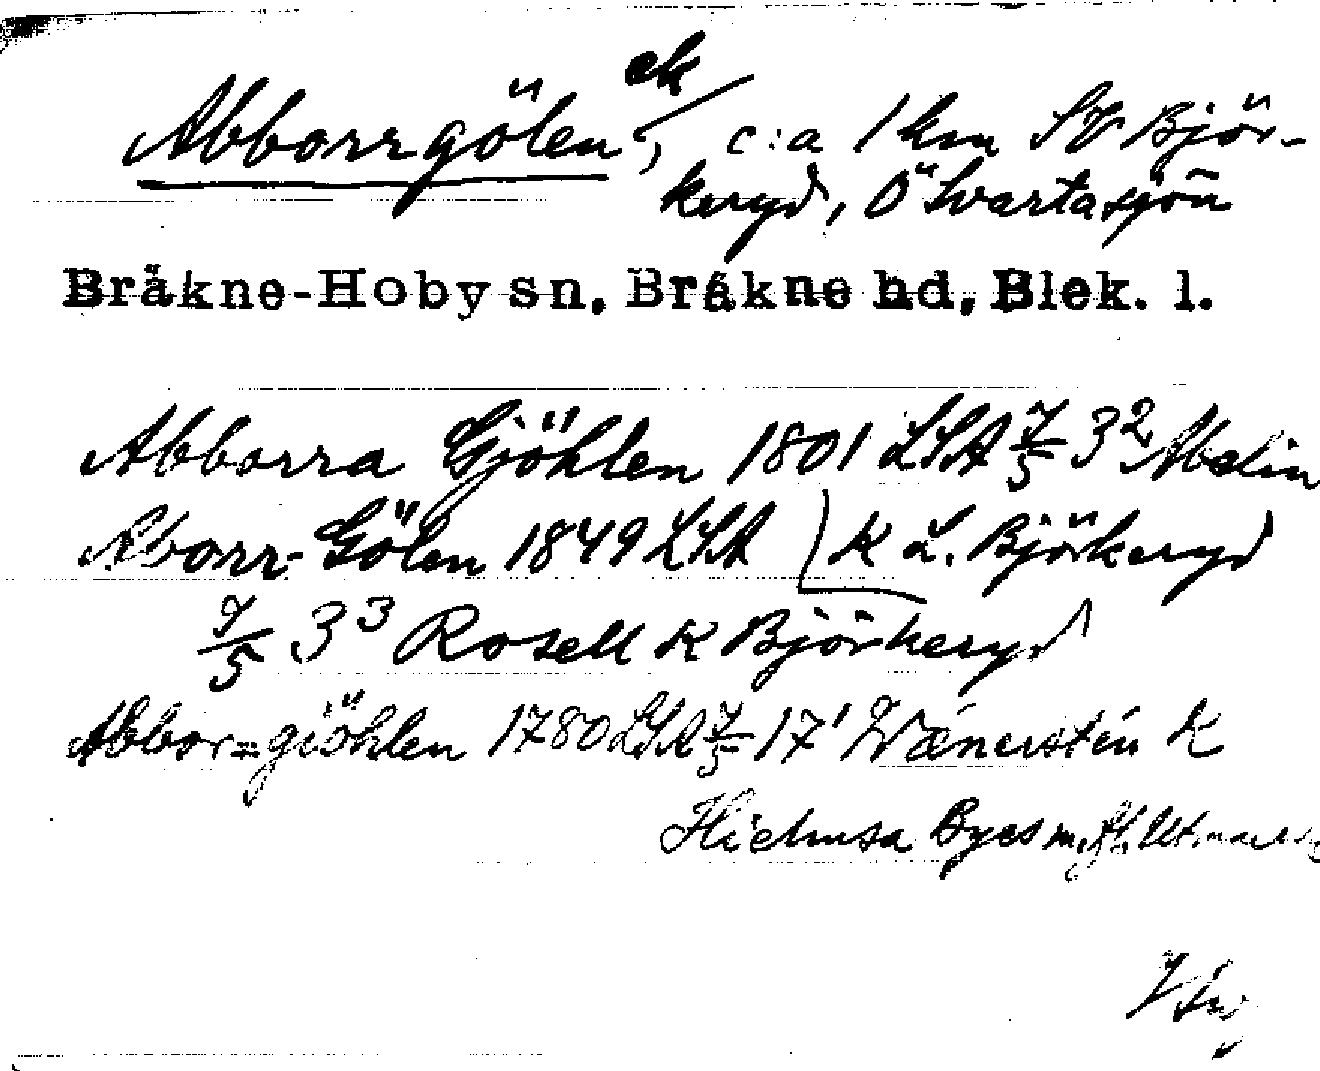 Abborrgölen, ek c:a 1 km SV Björ-
keryd, Ö Svartasjön
Bräkne-Hoby sn, Bräkne hd, Blek. l.
Abborra Gjöhlen 1801 LSA 7/5 3² Abelin
Aborr-Gölen 1849 LSA K L. Björkeryd
7/5 3³ Rosell K Björkeryd
Abbor=giöhlen 1780 LSA 7/5 17¹ Wænerstén K
Hielmsa Byes m.fl. Utmark